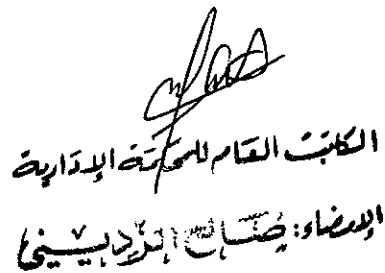 الكاتب العام للمحكمة الإدارية
الإمضاء: صالح الرديسي